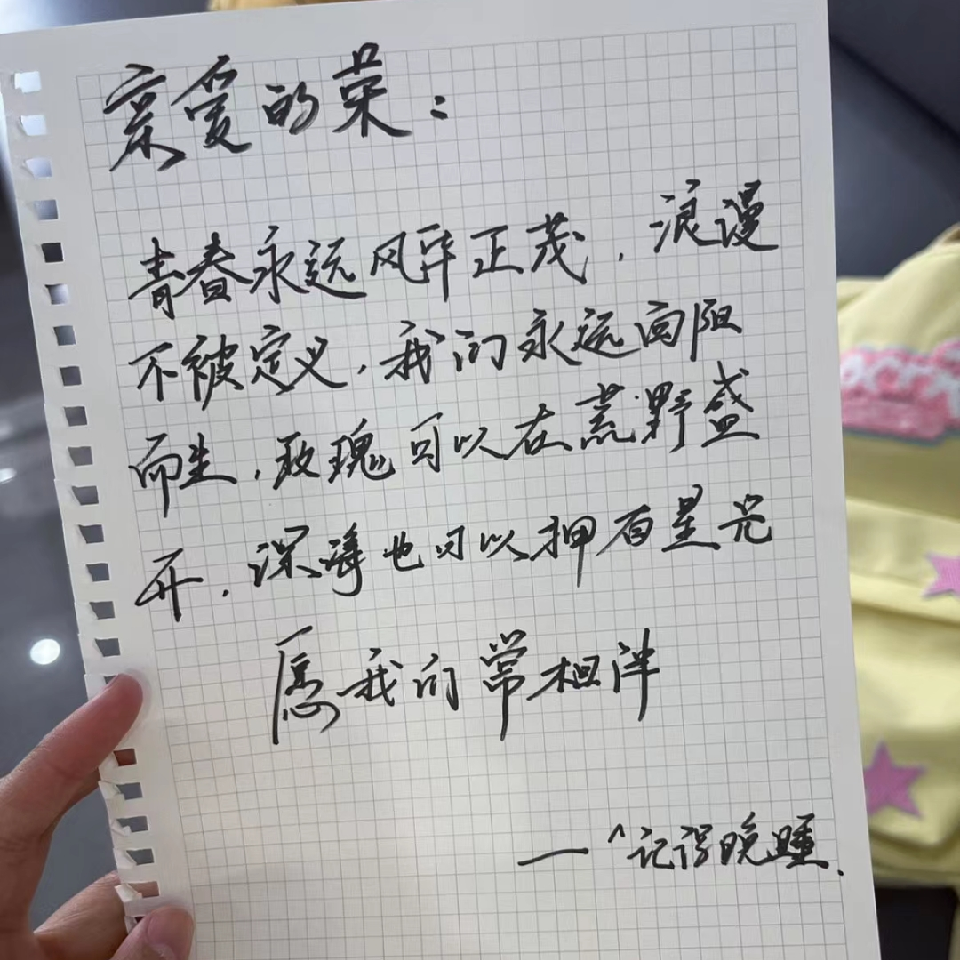 亲爱的荣：
青春永远风华正茂，浪漫
不被定义，我们永远向阳
而生，玫瑰可以在荒野盛
开，深海也可以拥有星光
愿我们常相伴
——^记得晚睡.